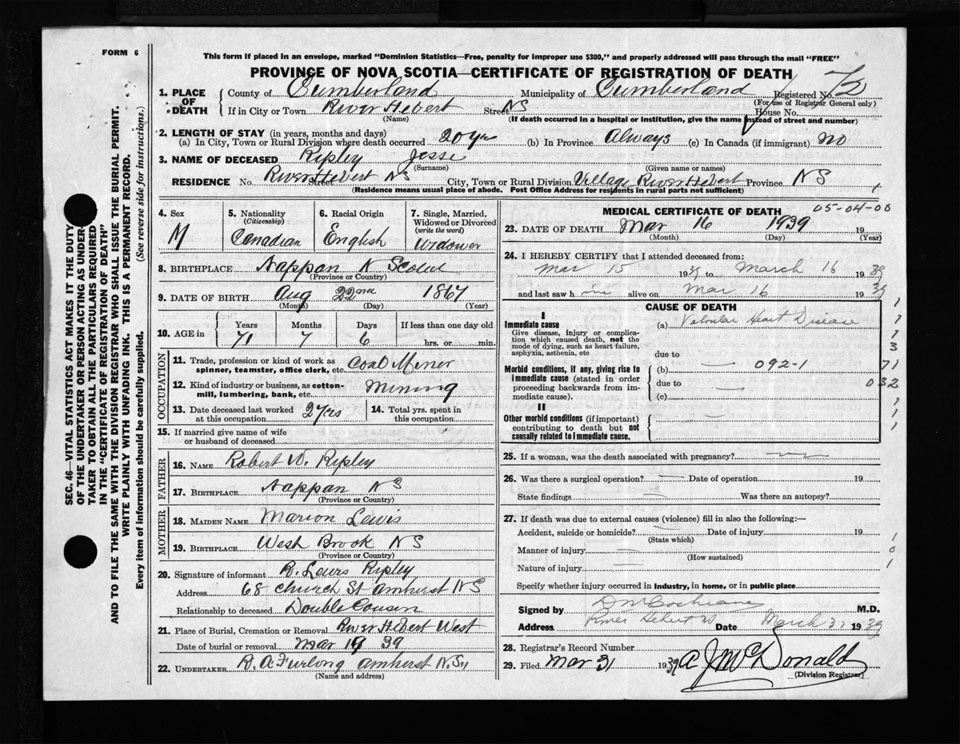 FORM 6
This form if placed in an envelope, marked "Dominion Statistics—Free, penalty for improper use $300," and properly addressed will pass through the mail "FREE"
PROVINCE OF NOVA SCOTIA—CERTIFICATE OF REGISTRATION OF DEATH
1. PLACE OF DEATH
County of Cumberland Municipality of Cumberland Registered No. 72
(For use of Registrar General only)
If in City or Town River Hebert Street NS House No.
(Name) (If death occurred in a hospital or institution, give the name instead of street and number)
2. LENGTH OF STAY (in years, months and days)
(a) In City, Town or Rural Division where death occurred 20 yrs (b) In Province Always (c) In Canada (if immigrant) no
3. NAME OF DECEASED Ripley Jesse
(Surname) (Given name or names)
RESIDENCE No. River Hebert NS Street City, Town or Rural Division Village River Hebert Province NS
(Residence means usual place of abode. Post Office Address for residents in rural parts not sufficient)
4. Sex
M
5. Nationality (Citizenship)
Canadian
6. Racial Origin
English
7. Single, Married, Widowed or Divorced (write the word)
Widower
8. BIRTHPLACE Nappan N Scotia
(Province or Country)
9. DATE OF BIRTH Aug 22nd 1867
(Month) (Day) (Year)
10. AGE in
Years Months Days If less than one day old
71 7 6 hrs. or min.
OCCUPATION
11. Trade, profession or kind of work as spinner, teamster, office clerk, etc. Coal Miner
12. Kind of industry or business, as cotton-mill, lumbering, bank, etc. Mining
13. Date deceased last worked at this occupation 2 yrs
14. Total yrs. spent in this occupation
15. If married give name of wife or husband of deceased
FATHER
16. NAME Robert W. Ripley
17. BIRTHPLACE Nappan NS
(Province or Country)
MOTHER
18. MAIDEN NAME Marion Lewis
19. BIRTHPLACE West Brook NS
(Province or Country)
20. Signature of informant R. Lewis Ripley
Address 68 Church St Amherst NS
Relationship to deceased Double Cousin
21. Place of Burial, Cremation or Removal River Hebert West
Date of burial or removal Mar 19 39
22. UNDERTAKER R. A. Furlong Amherst NS
(Name and address)
MEDICAL CERTIFICATE OF DEATH
05-04-00
23. DATE OF DEATH Mar 16 1939 19
(Month) (Day) (Year)
24. I HEREBY CERTIFY that I attended deceased from:
Mar 15 1939 to March 16 1939
and last saw him alive on Mar 16 1939
CAUSE OF DEATH
I
Immediate cause
Give disease, injury or complication which caused death, not the mode of dying, such as heart failure, asphyxia, asthenia, etc
(a) Valvular Heart Disease
due to
Morbid conditions, if any, giving rise to immediate cause (stated in order proceeding backwards from immediate cause).
(b) 092-1
due to
(c)
II
Other morbid conditions (if important) contributing to death but not causally related to immediate cause.
1
1
1
3
71
032
1
1
1
25. If a woman, was the death associated with pregnancy?
26. Was there a surgical operation? Date of operation 19
State findings Was there an autopsy?
27. If death was due to external causes (violence) fill in also the following:—
Accident, suicide or homicide? Date of injury 19
(State which)
Manner of injury
(How sustained)
Nature of injury
1
0
1
Specify whether injury occurred in industry, in home, or in public place
Signed by D M Cochrane M.D.
Address River Hebert Date March 31 1939
28. Registrar's Record Number
29. Filed Mar 31 1939 A J McDonald
(Division Registrar)
SEC. 46—VITAL STATISTICS ACT MAKES IT THE DUTY
OF THE UNDERTAKER OR PERSON ACTING AS UNDER-
TAKER TO OBTAIN ALL THE PARTICULARS REQUIRED
IN THE "CERTIFICATE OF REGISTRATION OF DEATH"
AND TO FILE THE SAME WITH THE DIVISION REGISTRAR WHO SHALL ISSUE THE BURIAL PERMIT.
WRITE PLAINLY WITH UNFADING INK. THIS IS A PERMANENT RECORD.
Every item of information should be carefully supplied. (See reverse side for instructions.)